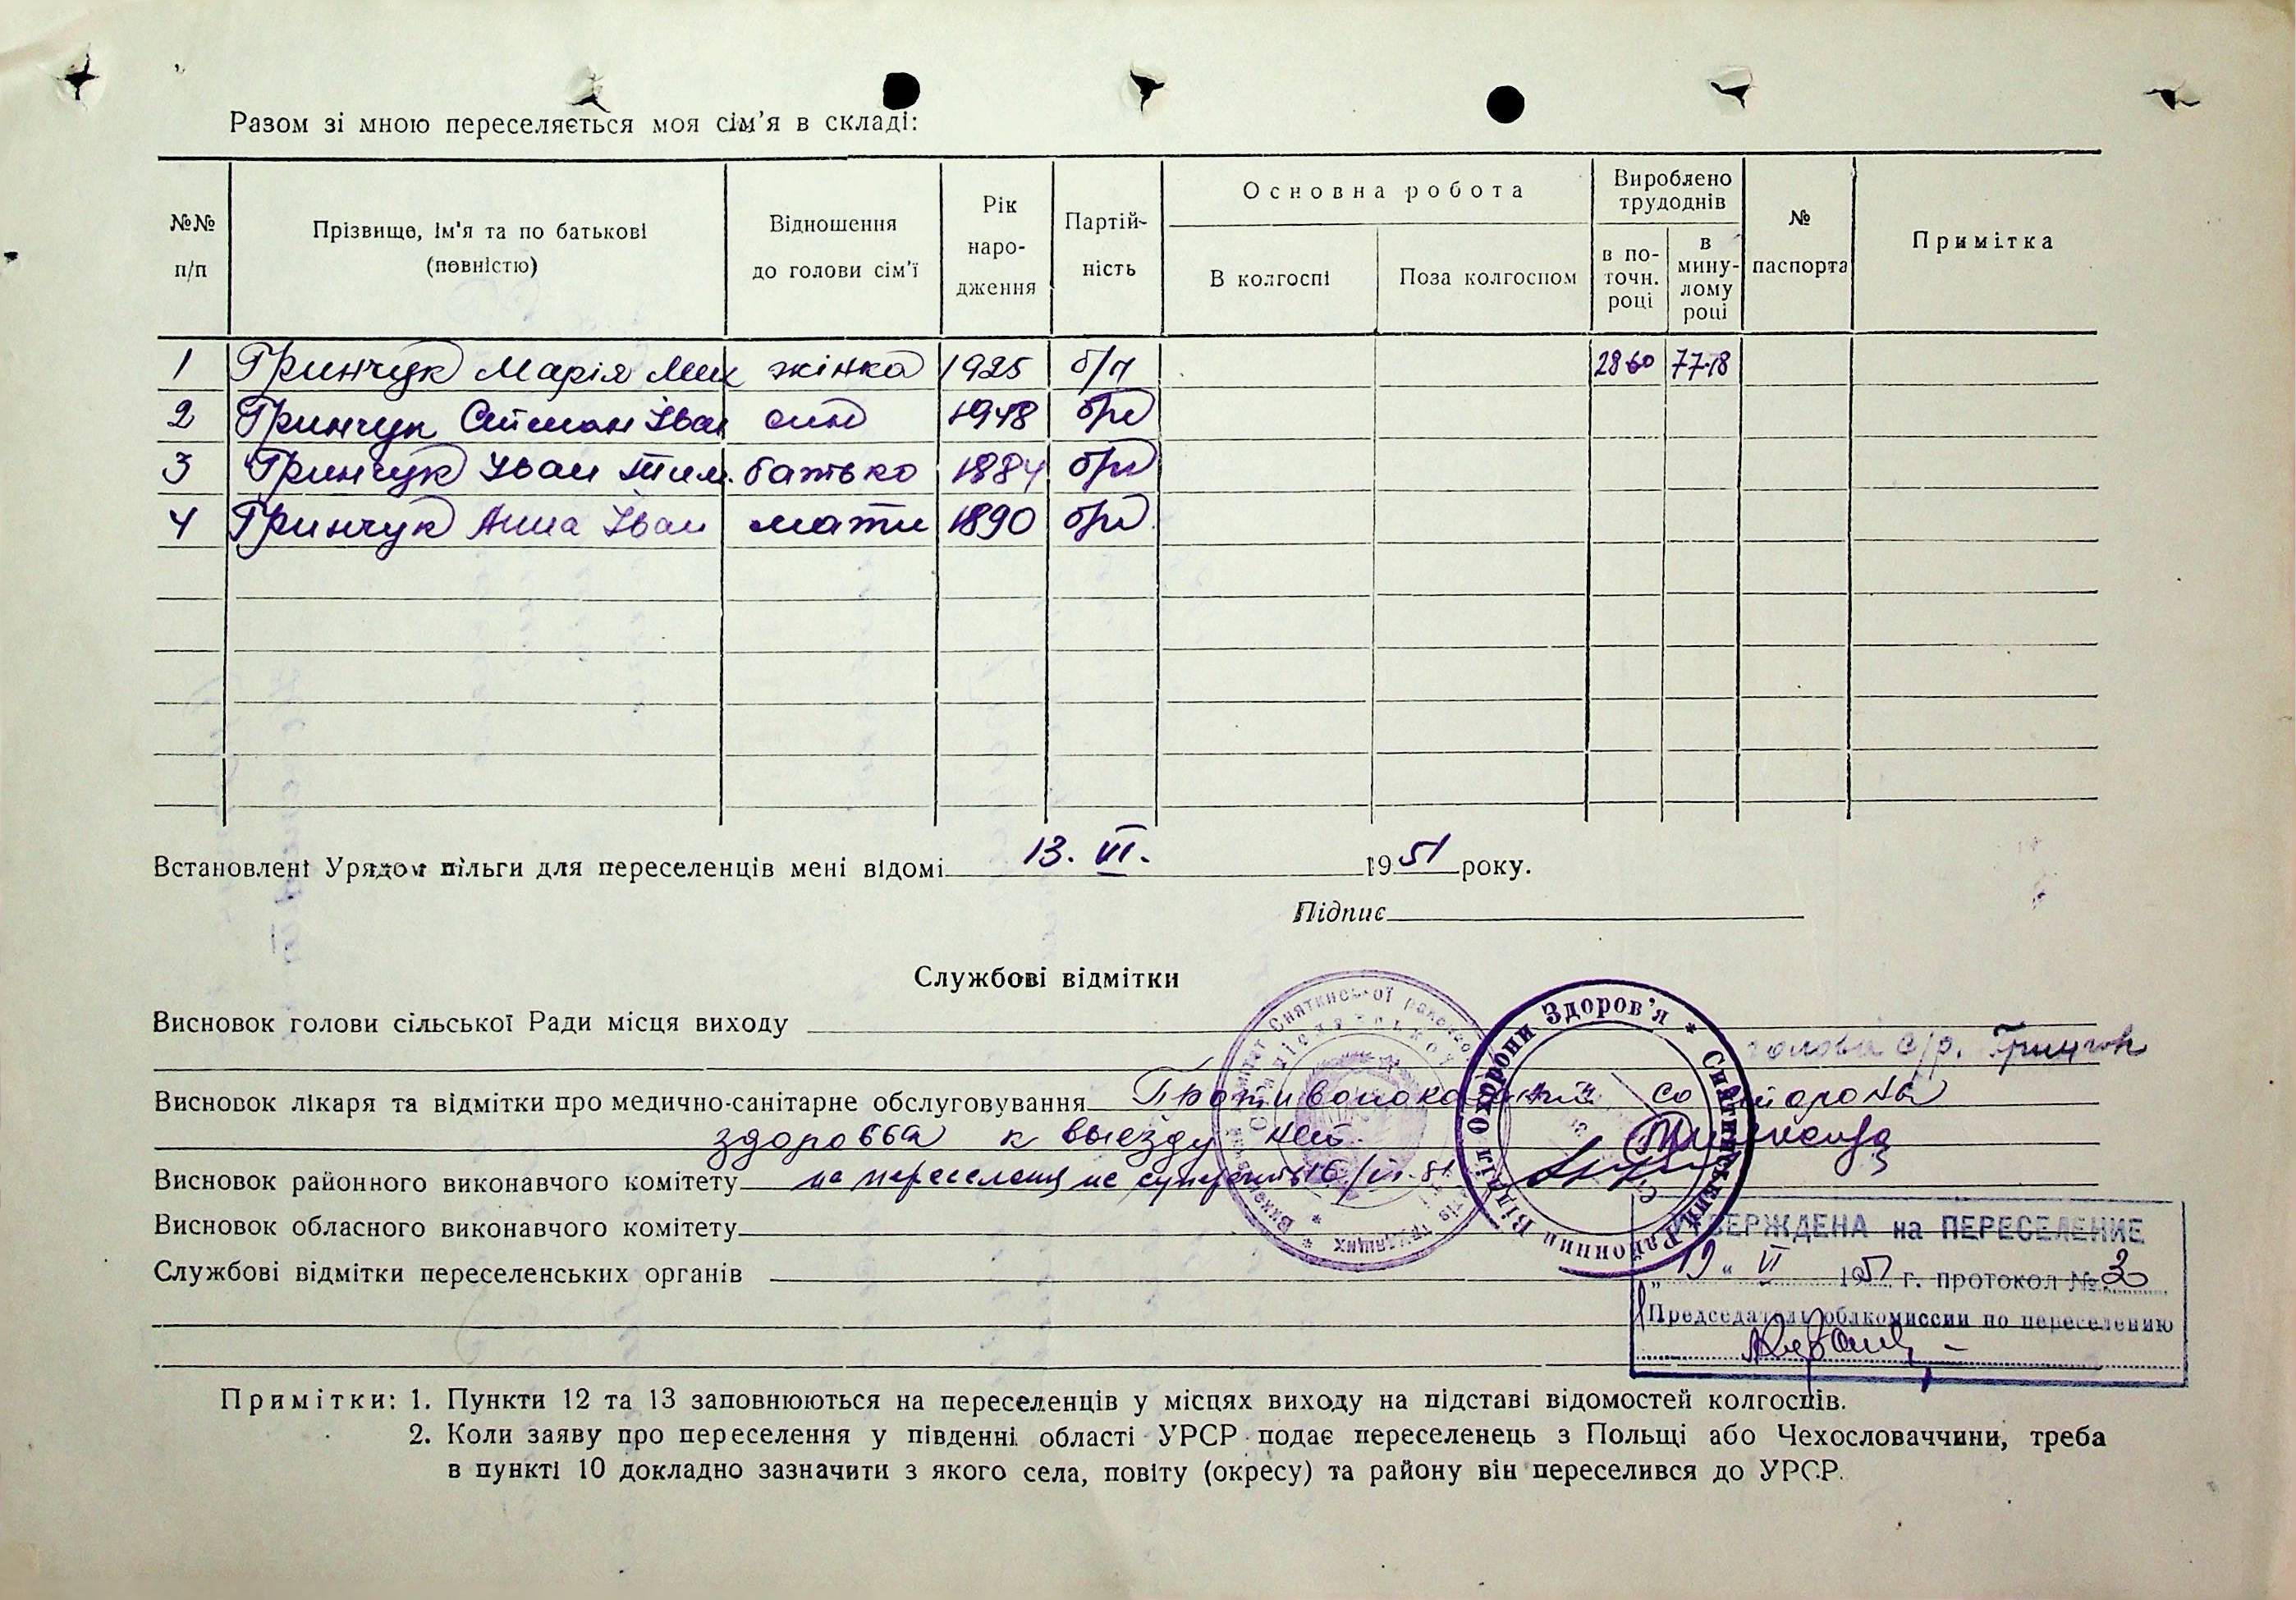 Разом зі мною переселяється моя сім'я в складі:
№№ п/п
Прізвище, ім'я та по батькові (повністю)
Відношення до голови сім'ї
Рік народження
Партійність
Основна робота
В колгоспі
Поза колгоспом
Вироблено трудоднів
в поточн. році
в минулому році
№ паспорта
Примітка
1 Гринчук Марія Мих жінка 1925 б/п 28-60 77-18
2 Гринчук Іван син 1948 б/п
3 Гринчук Іван Тим. батько 1884 б/п
4 Гринчук Анна Іван мати 1890 б/п
Встановлені Урядом пільги для переселенців мені відомі 13. VI. 1951 року.
Підпис
Службові відмітки
Висновок голови сільської Ради місця виходу
голова с/р.
Висновок лікаря та відмітки про медично-санітарне обслуговування Противопоказаний со стороны
здоровья к выезду нет.
Висновок районного виконавчого комітету на переселения не
Висновок обласного виконавчого комітету
Службові відмітки переселенських органів
Районний Відділ Охорони Здоров'я * Снятинський
УТВЕРЖДЕНА на ПЕРЕСЕЛЕНИЕ
„19" VI 1951 г. протокол № 3
Председатель облкомиссии по переселению
Примітки: 1. Пункти 12 та 13 заповнюються на переселенців у місцях виходу на підставі відомостей колгоспів.
2. Коли заяву про переселення у південні області УРСР подає переселенець з Польщі або Чехословаччини, треба
в пункті 10 докладно зазначити з якого села, повіту (округу) та району він переселився до УРСР.